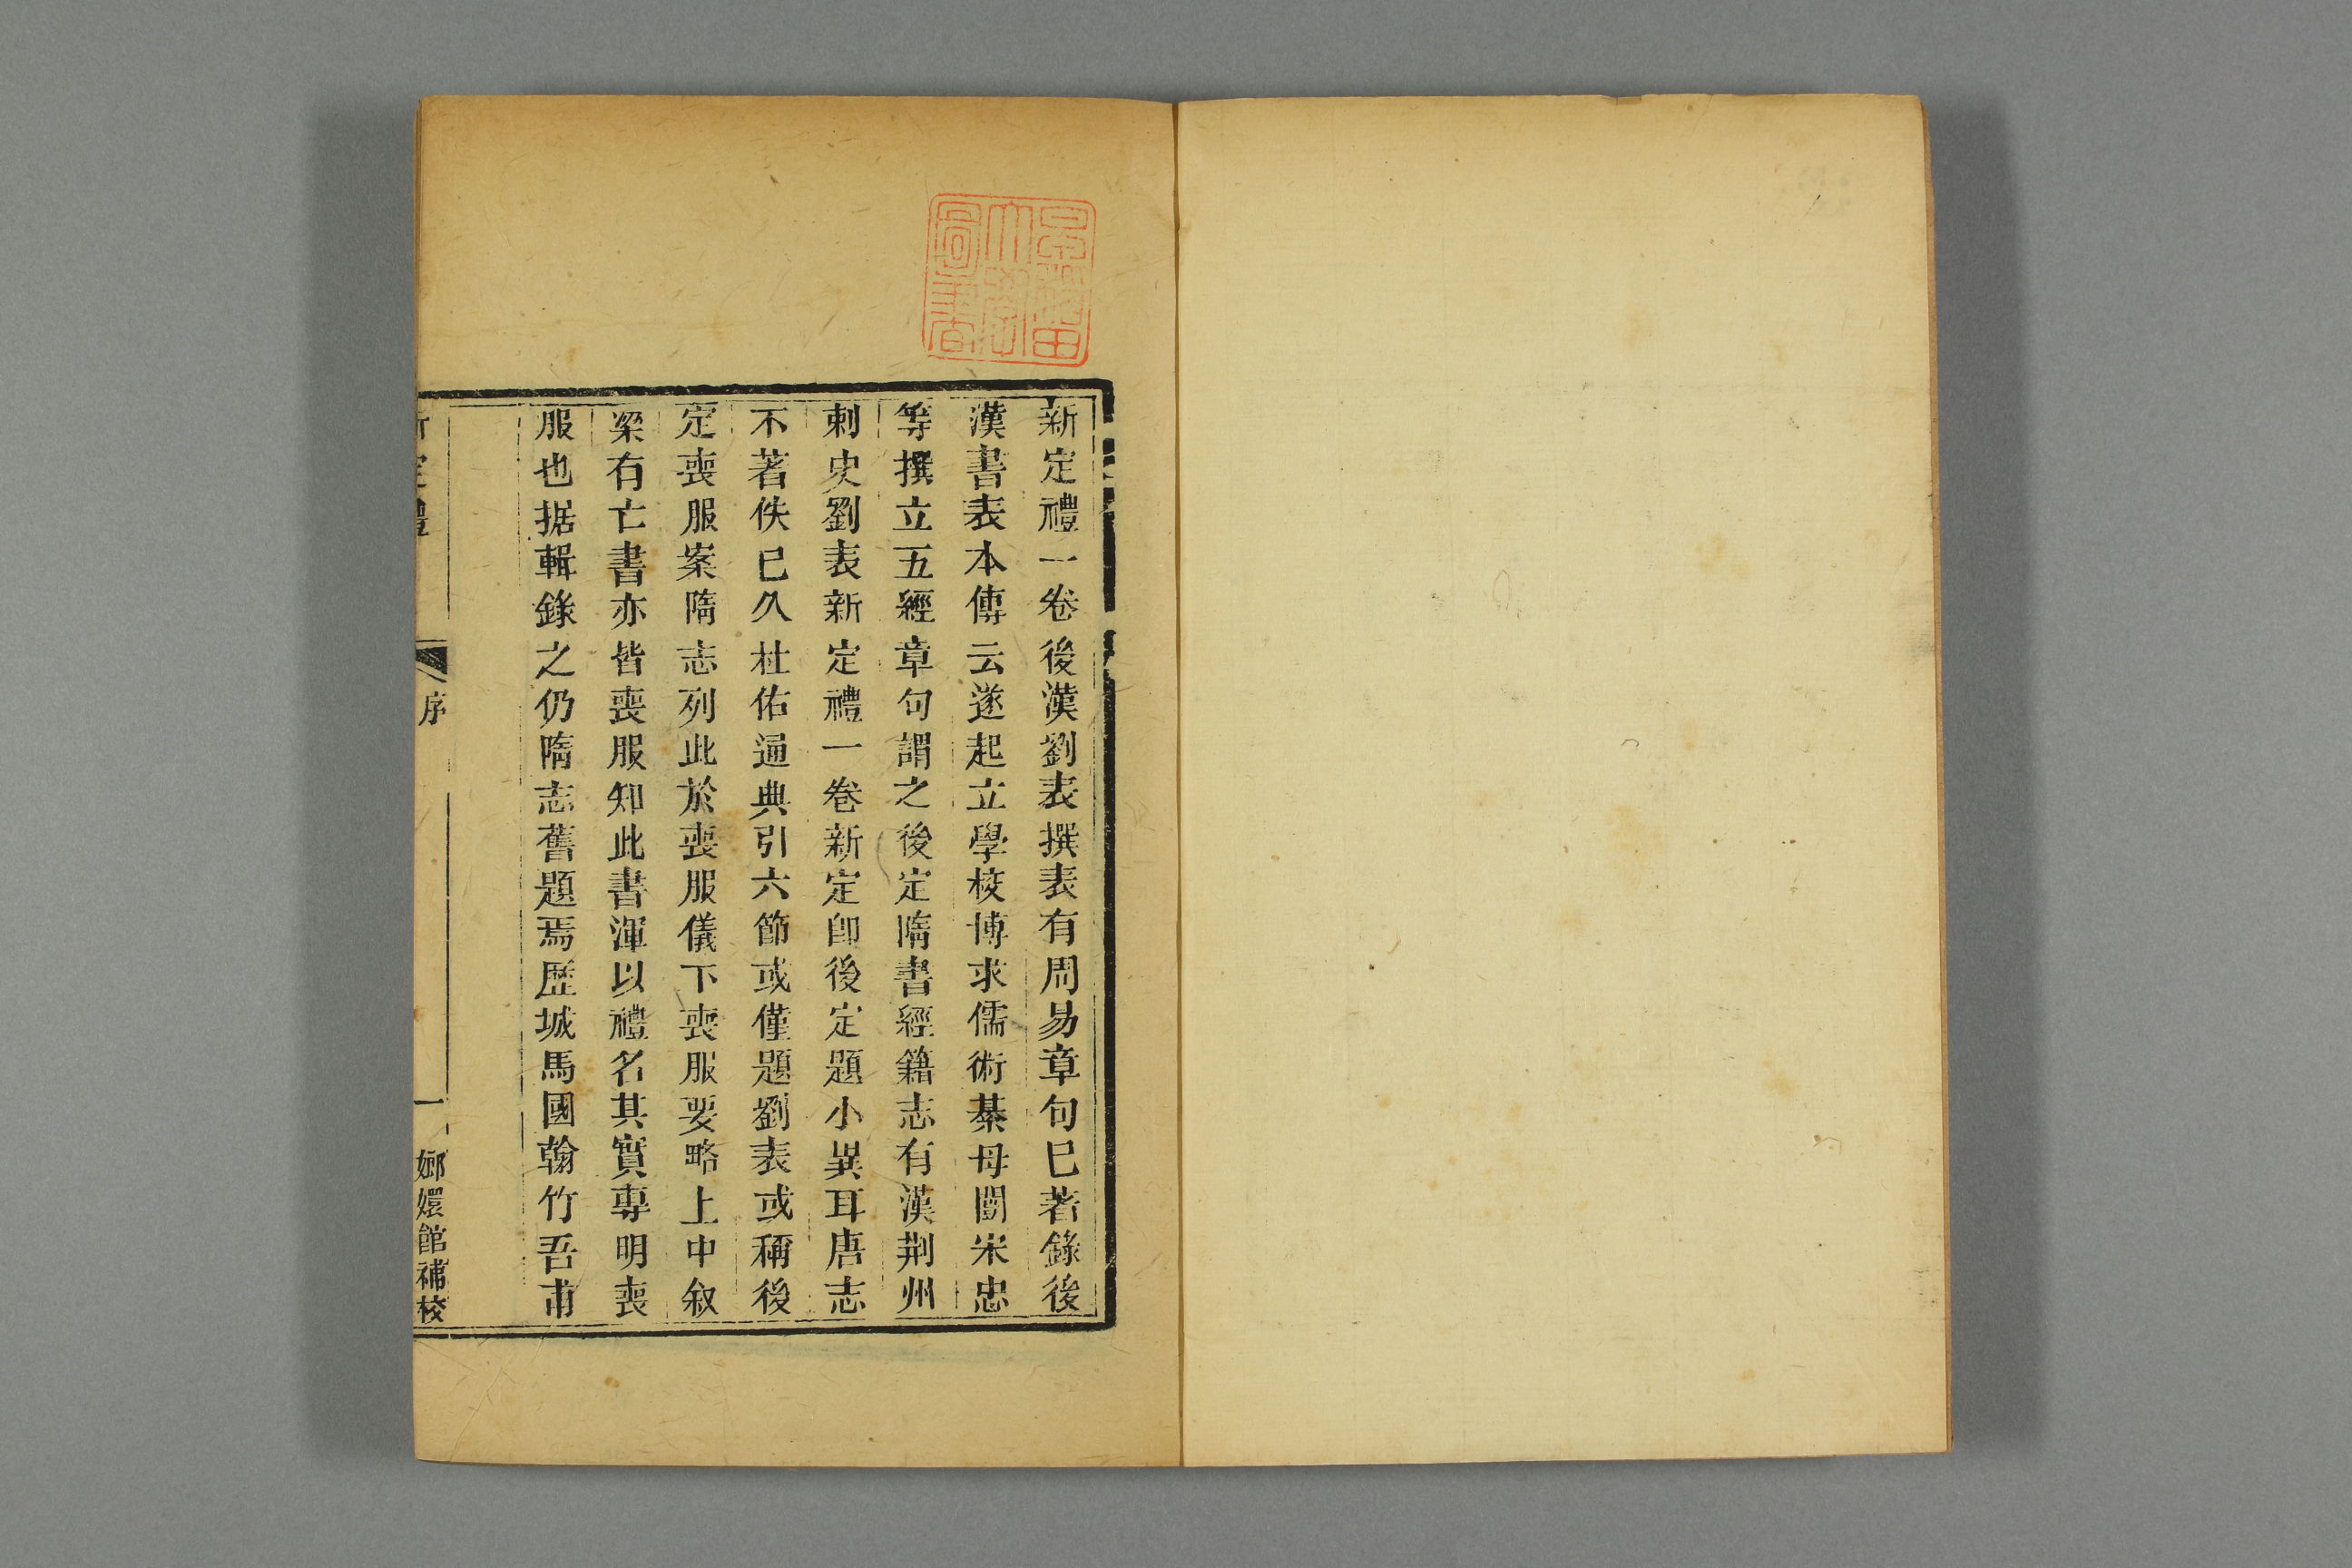 新定禮一卷後漢劉表撰表有周易章句巳著錄後
漢書表本傳云遂起立學校博求儒術綦母闓宋忠
等撰立五經章句謂之後定隋書經籍志有漢荆州
刺史劉表新定禮一卷新定卽後定題小異耳唐志
不著佚巳久杜佑通典引六節或僅題劉表或稱後
定喪服案隋志列此於喪服儀下喪服要略上中叙
梁有亡書亦皆喪服知此書渾以禮名其實專明喪
服也据輯錄之仍隋志舊題焉歷城馬國翰竹吾甫
新定禮
序
一
嫏嬛館補校
早稻田
大學
圖書